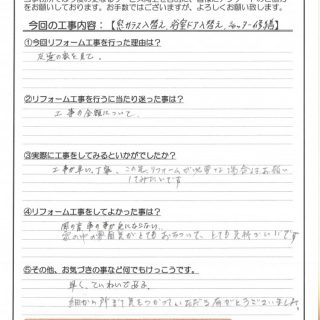 をお願いしております。お手数ではございますが、よろしくお願い致します。
今回の工事内容:【窓ガラス入替え、浴室ドア入替え、
①今回リフォーム工事を行った理由は?
友達の家を見て。
②リフォーム工事を行うに当たり迷った事は?
工事の金額について
③実際に工事をしてみるといかがでしたか?
工事が早い、丁寧、この先リフォームが必要な場合はお願い
してみたいです
④リフォームをしてよかった事は?
家の中の雰囲気がとてもおちついて、とても気持がいいです
⑤その他、お気づきの事など何でもけっこうです。
早く、ていねいである。
細かい所まで気をつかっていただきありがとうございました。